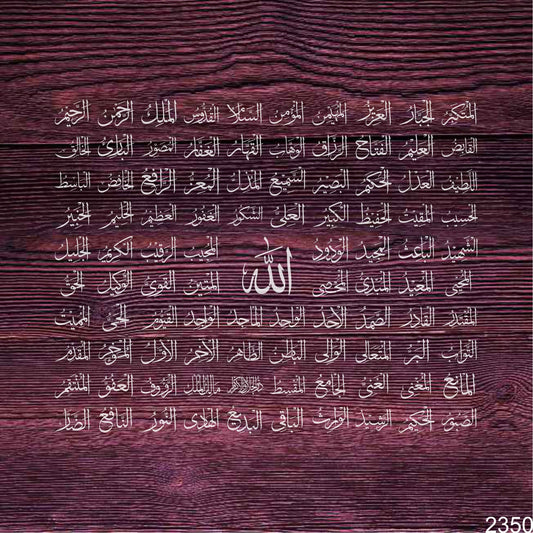 المتكبر الجبار العزيز المهيمن المؤمن السلام القدوس الملك الرحمن الرحيم
القابض العليم الفتاح الرزاق الوهاب القهار الغفار المصور البارئ الخالق
اللطيف العدل الحكم البصير السميع المذل المعز الرافع الخافض الباسط
الحسيب المقيت الحفيظ الكبير العلي الشكور الغفور العظيم الحليم الخبير
الشهيد الباعث المجيد الودود المجيب الرقيب الكريم الجليل
الله
المحيي المعيد المبدئ المحصي المتين القوي الوكيل الحق
المقتدر القادر الصمد الأحد الواحد الماجد الواجد القيوم الحي المميت
التواب البر المتعالي الوالي الباطن الظاهر الآخر الأول المؤخر المقدم
المانع المغني الغني الجامع المقسط ذو الجلال والإكرام مالك الملك الرؤوف العفو المنتقم
الصبور الحكيم الرشيد الوارث الباقي البديع الهادي النور النافع الضار
2350